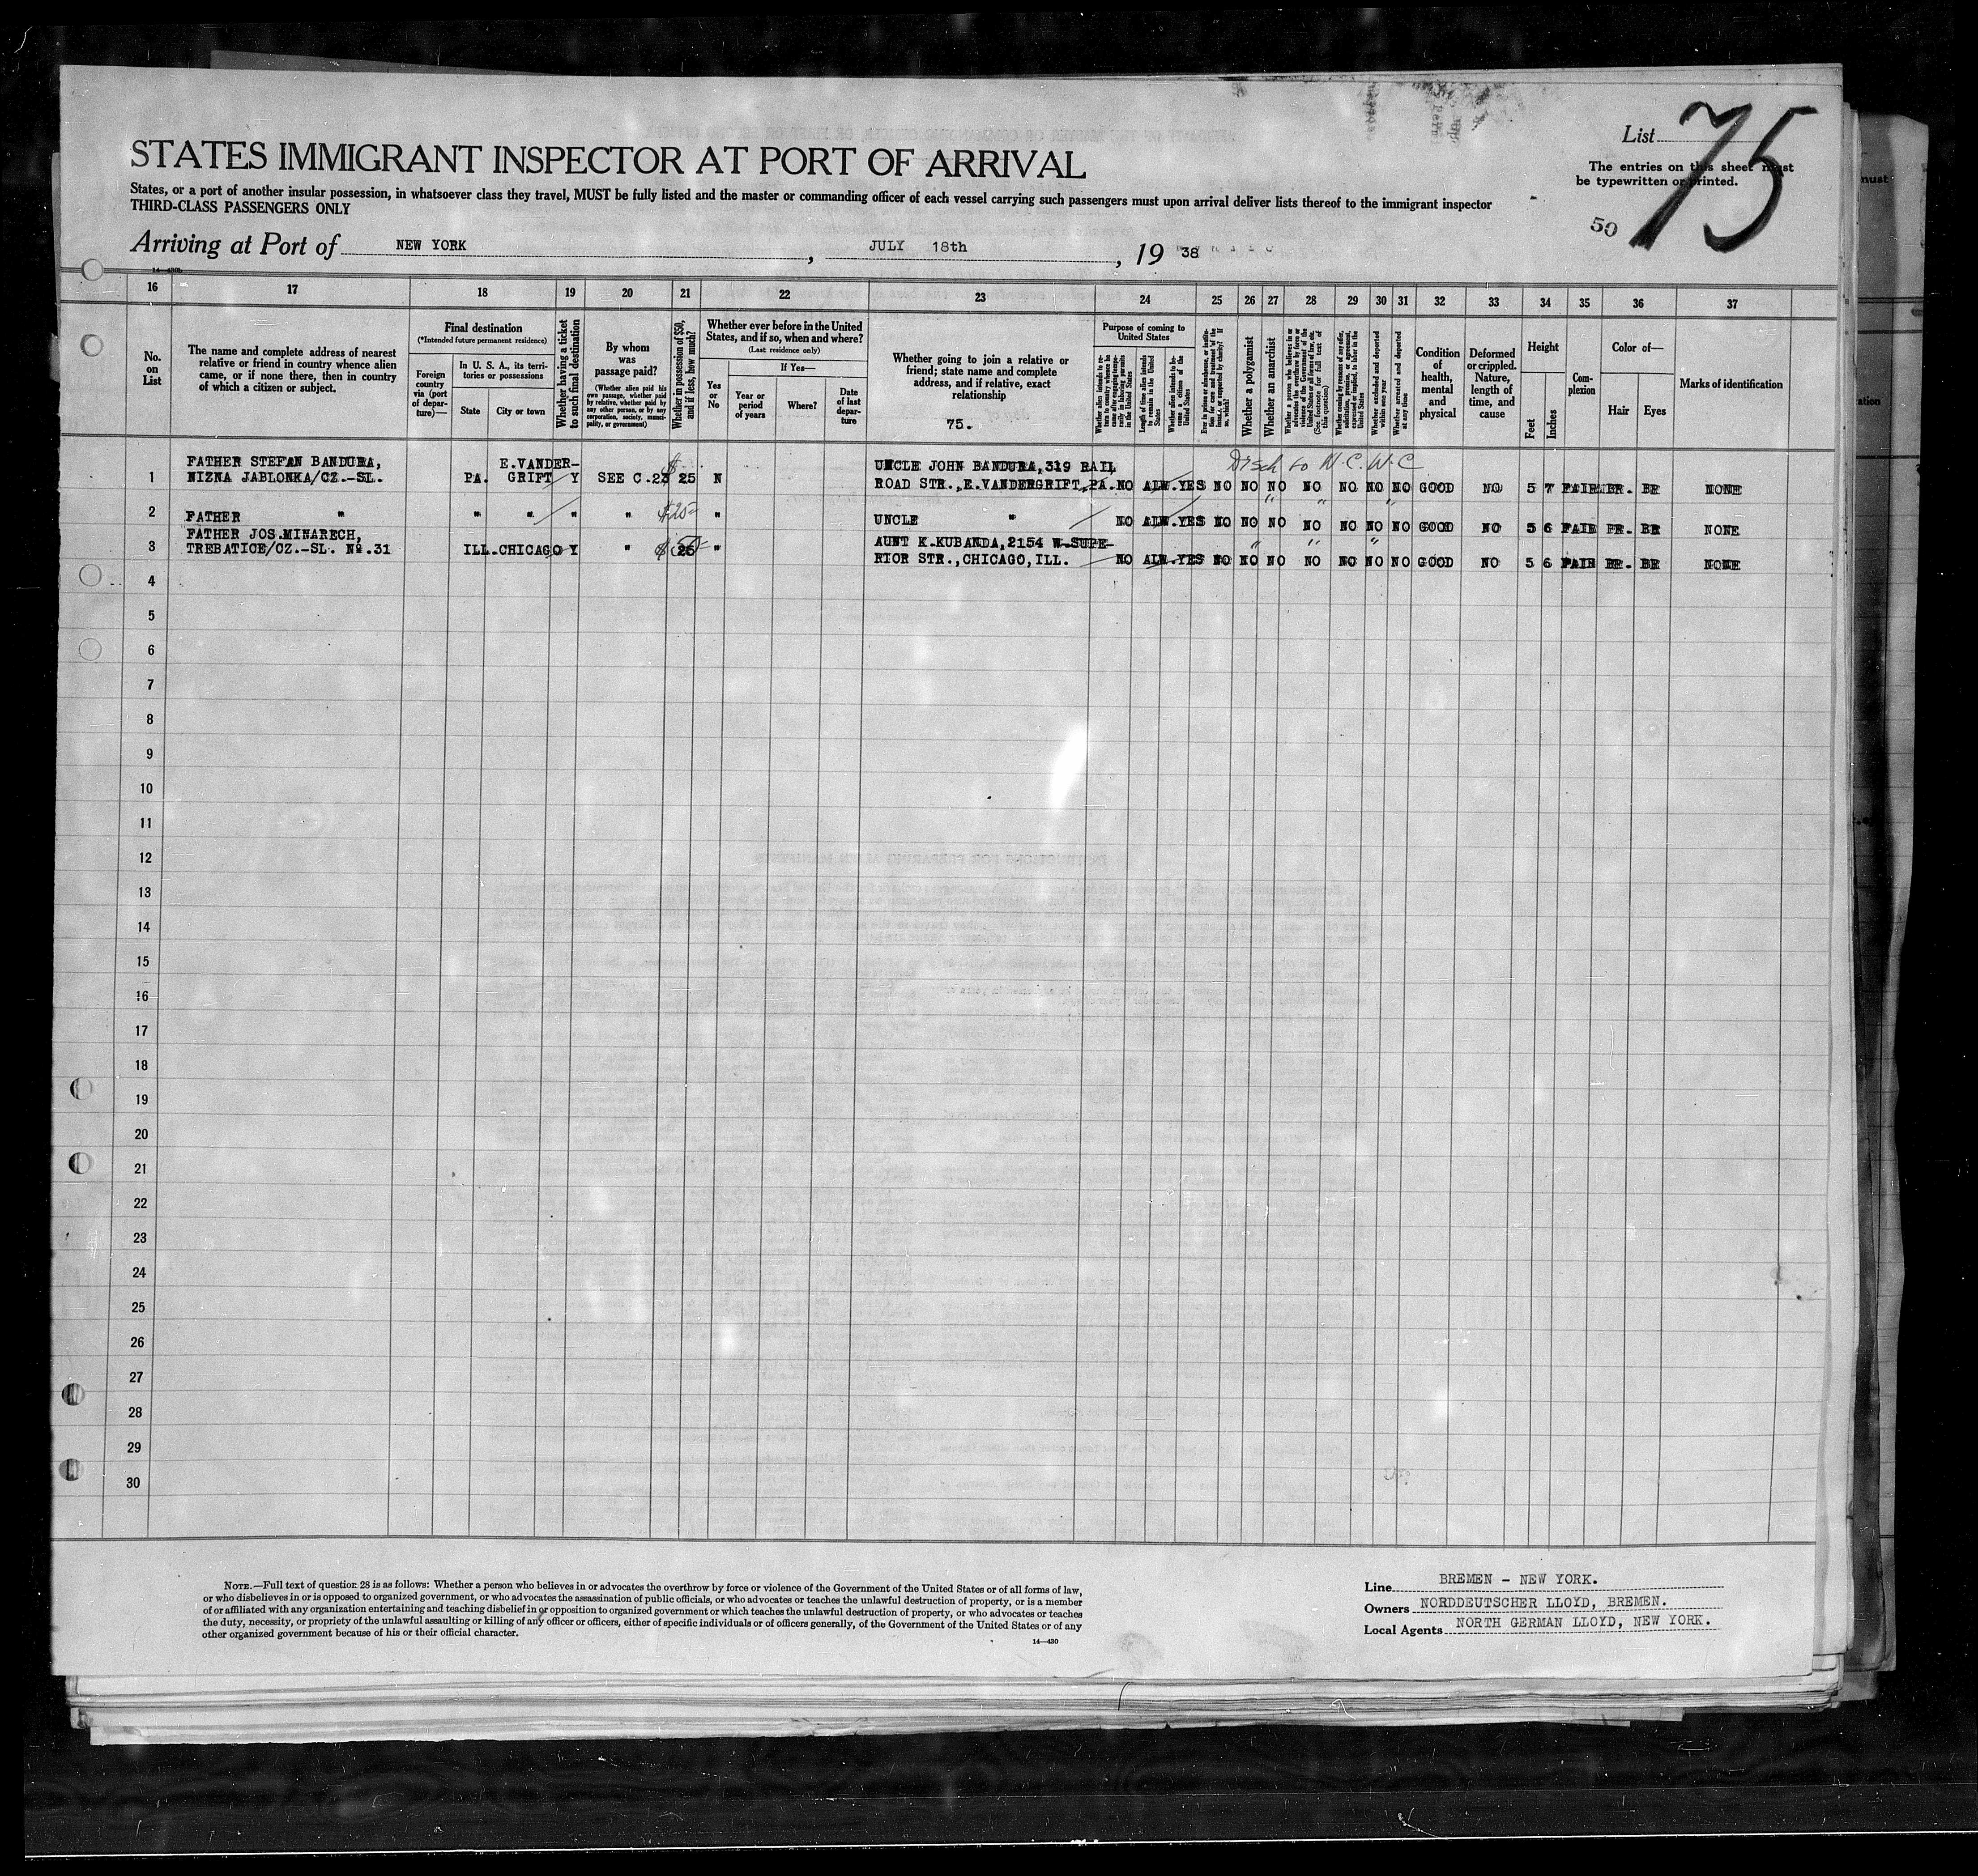 List 75
STATES IMMIGRANT INSPECTOR AT PORT OF ARRIVAL
The entries on this sheet must
be typewritten or printed.
States, or a port of another insular possession, in whatsoever class they travel, MUST be fully listed and the master or commanding officer of each vessel carrying such passengers must upon arrival deliver lists thereof to the immigrant inspector
THIRD-CLASS PASSENGERS ONLY
50
Arriving at Port of NEW YORK, JULY 18th, 19 38
14—430b
16 17 18 19 20 21 22 23 24 25 26 27 28 29 30 31 32 33 34 35 36 37
No. on List
The name and complete address of nearest relative or friend in country whence alien came, or if none there, then in country of which a citizen or subject.
Final destination
(*Intended future permanent residence)
Foreign country via (port of departure)—
In U. S. A., its territories or possessions
State
City or town
Whether having a ticket to such final destination
By whom was passage paid?
(Whether alien paid his own passage, whether paid by relative, whether paid by any other person, or by any corporation, society, municipality, or government)
Whether in possession of $50, and if less, how much?
Whether ever before in the United States, and if so, when and where?
(Last residence only)
Yes or No
If Yes—
Year or period of years
Where?
Date of last departure
Whether going to join a relative or friend; state name and complete address, and if relative, exact relationship
75.
Purpose of coming to United States
Whether alien intends to return to country whence he came after engaging temporarily in laboring pursuits in the United States
Length of time alien intends to remain in the United States
Whether alien intends to become a citizen of the United States
Ever in prison or almshouse, or institution for care and treatment of the insane, or supported by charity? If so, which?
Whether a polygamist
Whether an anarchist
Whether a person who believes in or advocates the overthrow by force or violence of the Government of the United States or all forms of law, etc. (See footnote for full text of this question)
Whether coming by reason of any offer, solicitation, promise, or agreement, expressed or implied, to labor in the United States
Whether excluded and deported within one year
Whether arrested and deported at any time
Condition of health, mental and physical
Deformed or crippled. Nature, length of time, and cause
Height
Feet
Inches
Complexion
Color of—
Hair
Eyes
Marks of identification
Disch to N.C.W.C
1 FATHER STEFAN BANDURA, E.VANDER- $ UNCLE JOHN BANDURA,319 RAIL
NIZNA JABLONKA/CZ.-SL. PA. GRIFT Y SEE C.23 25 N ROAD STR.,E.VANDERGRIFT,PA. NO ALW. YES NO NO NO NO NO NO NO GOOD NO 5 7 FAIR BR. BR NONE
2 FATHER " " " " " $25 " UNCLE " NO ALW. YES NO NO NO NO NO NO NO GOOD NO 5 6 FAIR BR. BR NONE
3 FATHER JOS.MINARECH, AUNT K.KUBANDA,2154 W-SUPE-
TREBATICE/CZ.-SL. No.31 ILL. CHICAGO Y " $ 25 " RIOR STR.,CHICAGO,ILL. NO ALW. YES NO NO NO NO NO NO NO GOOD NO 5 6 FAIR BR. BR NONE
4
5
6
7
8
9
10
11
12
13
14
15
16
17
18
19
20
21
22
23
24
25
26
27
28
29
30
NOTE.—Full text of question 28 is as follows: Whether a person who believes in or advocates the overthrow by force or violence of the Government of the United States or of all forms of law,
or who disbelieves in or is opposed to organized government, or who advocates the assassination of public officials, or who advocates or teaches the unlawful destruction of property, or is a member
of or affiliated with any organization entertaining and teaching disbelief in or opposition to organized government or which teaches the unlawful destruction of property, or who advocates or teaches
the duty, necessity, or propriety of the unlawful assaulting or killing of any officer or officers, either of specific individuals or of officers generally, of the Government of the United States or of any
other organized government because of his or their official character.
14—430
Line BREMEN - NEW YORK.
Owners NORDDEUTSCHER LLOYD, BREMEN.
Local Agents NORTH GERMAN LLOYD, NEW YORK.